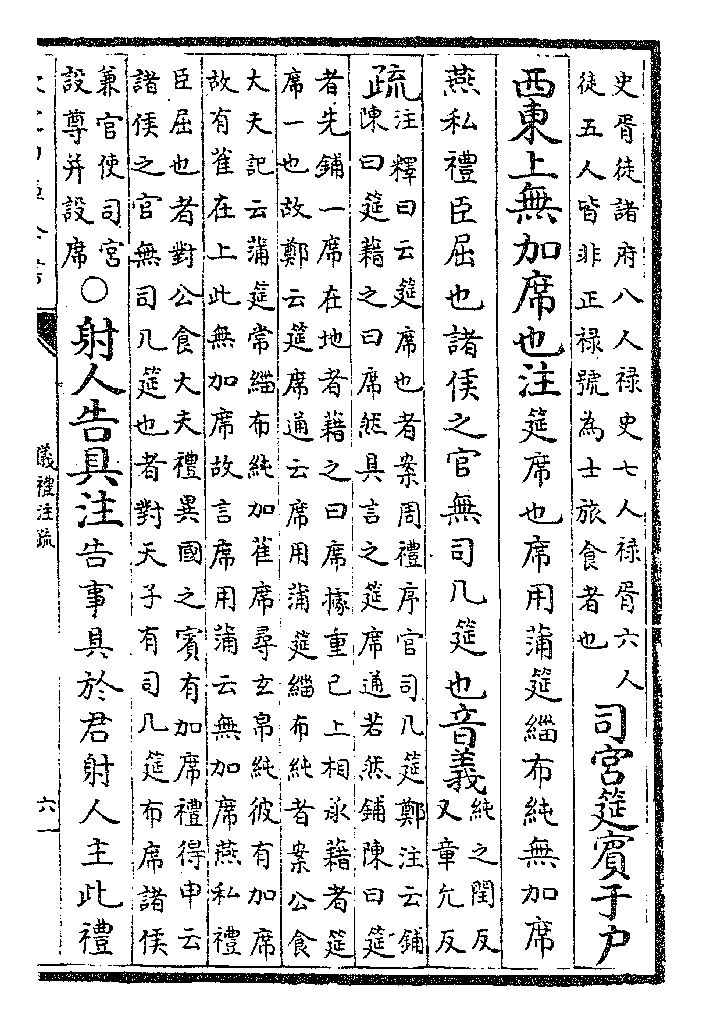 史胥徒諸府八人禄史七人禄胥六人
徒五人皆非正禄號為士旅食者也
司宮筵賓于户
西東上無加席也注筵席也席用蒲筵緇布純無加席
燕私禮臣屈也諸侯之官無司几筵也音義
純之閏反
又章允反
疏
注釋曰云筵席也者案周禮序官司几筵鄭注云鋪
陳曰筵藉之曰席然其言之筵席通若然鋪陳曰筵
者先鋪一席在地者藉之曰席據重已上相承藉者筵
席一也故鄭云筵席通云席用蒲筵緇布純者案公食
大夫記云蒲筵常緇布純加萑席尋玄帛純彼有加席
故有萑在上此無加席故言席用蒲云無加席燕私禮
臣屈也者對公食大夫禮異國之賓有加席禮得申云
諸侯之官無司几筵也者對天子有司几筵布席諸侯
兼官使司宮
設尊并設席
○射人告具注告事具於君射人主此禮
儀禮注疏
六